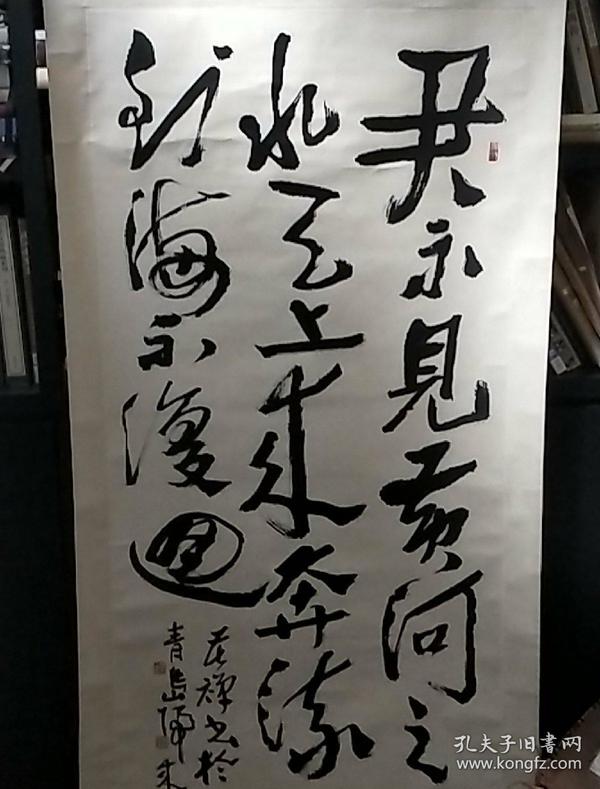 君不見黄河之
水天上来奔流
到海不復迴
苦禅书於
青島
孔夫子旧書网
www.kongfz.com